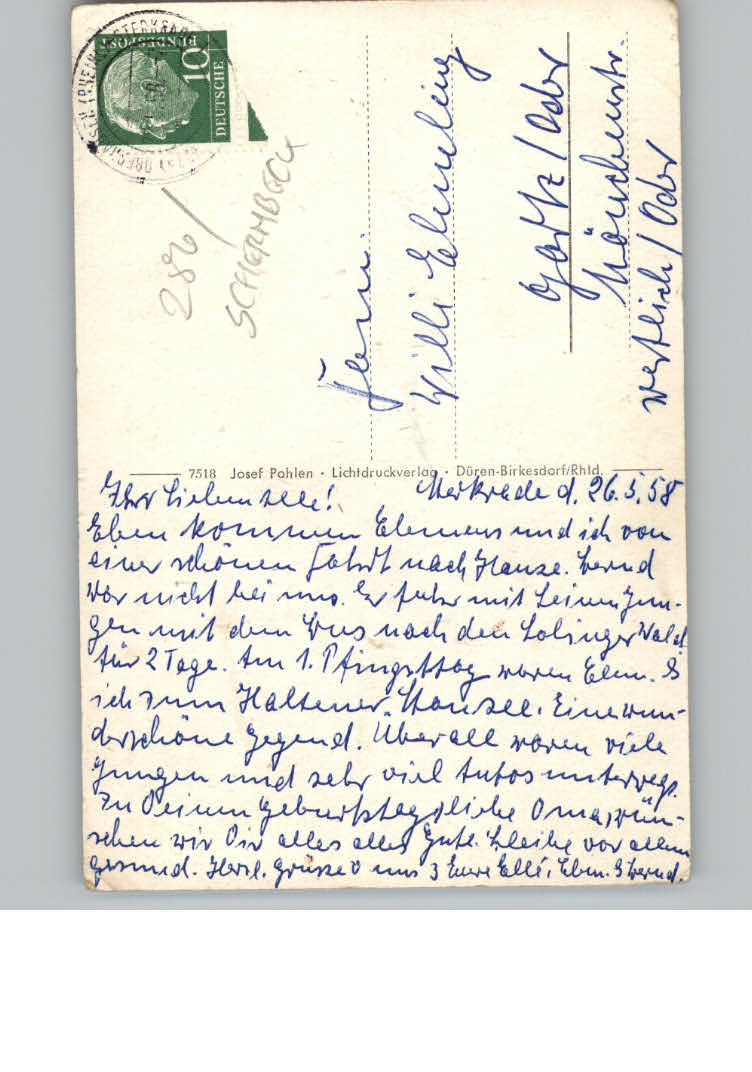 BUNDESPOST
10
DEUTSCHE
286/
SCHERMBECK
Fam.
Willi
Gartz/Oder
Mönchenstr.
westlich/Oder
7518 Josef Pohlen · Lichtdruckverlag · Düren-Birkesdorf/Rhld.
Ihr Lieben alle! d. 26.5.58
Eben kommen Clemens und ich von
einer schönen Fahrt nach Hause. Bernd
war nicht bei uns. Er fuhr mit seinen Jun-
gen mit dem Bus nach den Solinger Wald
für 2 Tage. Am 1. Pfingsttag waren Clem. &
ich zum Halterner Stausee. Eine wun-
derschöne Gegend. Überall waren viele
Jungen und sehr viel Autos unterwegs.
Zu Deinem Geburtstag, liebe Oma, wün-
schen wir Dir alles alles Gute. Bleibe vor allem
gesund. Herzl. Grüße v uns 3 Eure Elli, Clem. & Bernd.